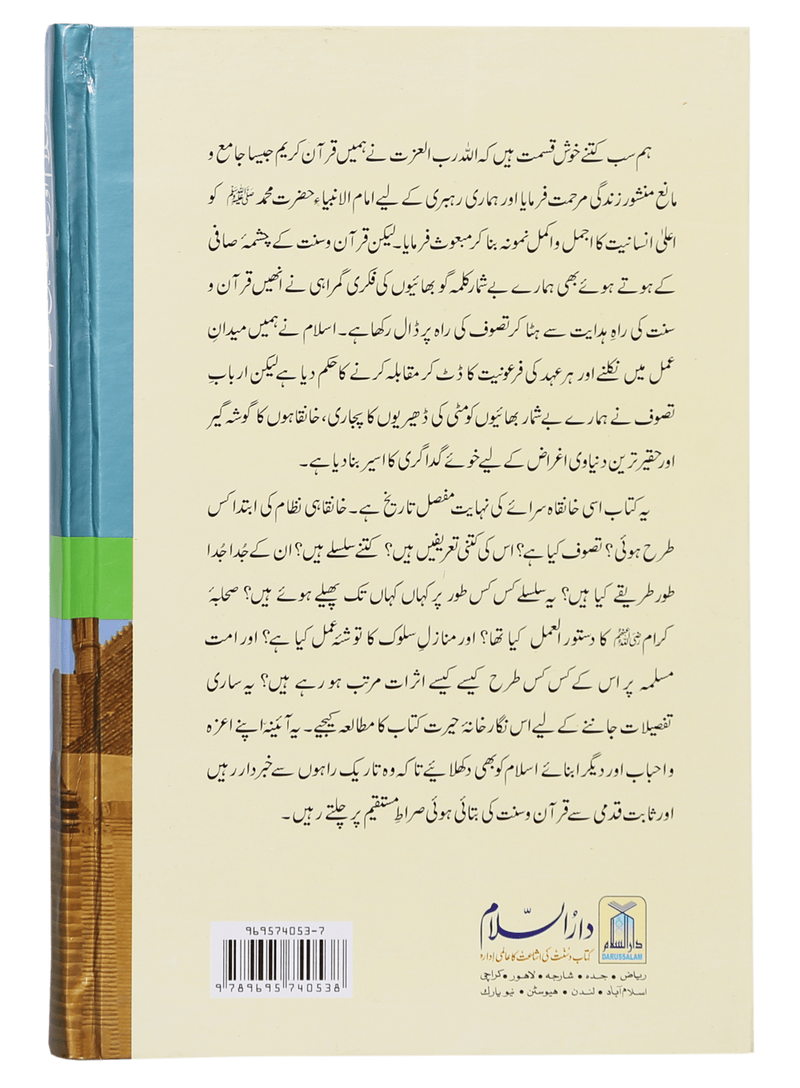 ہم سب کتنے خوش قسمت ہیں کہ اللہ رب العزت نے ہمیں قرآن کریم جیسا جامع و
مانع منشور زندگی مرحمت فرمایا اور ہماری رہبری کے لیے امام الانبیاء حضرت محمد ﷺ کو
اعلیٰ انسانیت کا اجمل و اکمل نمونہ بنا کر مبعوث فرمایا۔ لیکن قرآن وسنت کے چشمۂ صافی
کے ہوتے ہوئے بھی ہمارے بے شمار کلمہ گو بھائیوں کی فکری گمراہی نے انھیں قرآن و
سنت کی راہِ ہدایت سے ہٹا کر تصوف کی راہ پر ڈال رکھا ہے۔ اسلام نے ہمیں میدانِ
عمل میں نکلنے اور ہر عہد کی فرعونیت کا ڈٹ کر مقابلہ کرنے کا حکم دیا ہے لیکن اربابِ
تصوف نے ہمارے بے شمار بھائیوں کو مٹی کی ڈھیریوں کا پجاری، خانقاہوں کا گوشہ گیر
اور حقیر ترین دنیاوی اغراض کے لیے خوئے گداگری کا اسیر بنا دیا ہے۔
یہ کتاب اسی خانقاہ سرائے کی نہایت مفصل تاریخ ہے۔ خانقاہی نظام کی ابتدا کس
طرح ہوئی؟ تصوف کیا ہے؟ اس کی کتنی تعریفیں ہیں؟ کتنے سلسلے ہیں؟ ان کے جُدا جُدا
طور طریقے کیا ہیں؟ یہ سلسلے کس کس طور پر کہاں کہاں تک پھیلے ہوئے ہیں؟ صحابۂ
کرام رضی اللہ عنہم کا دستور العمل کیا تھا؟ اور منازلِ سلوک کا توشۂ عمل کیا ہے؟ اور امت
مسلمہ پر اس کے کس کس طرح کیسے کیسے اثرات مرتب ہو رہے ہیں؟ یہ ساری
تفصیلات جاننے کے لیے اس نگار خانۂ حیرت کتاب کا مطالعہ کیجیے۔ یہ آئینہ اپنے اعزہ
و احباب اور دیگر ابنائے اسلام کو بھی دکھلائیے تاکہ وہ تاریک راہوں سے خبردار رہیں
اور ثابت قدمی سے قرآن وسنت کی بتائی ہوئی صراطِ مستقیم پر چلتے رہیں۔
دارُالسّلام
کتاب وسنت کی اشاعت کا عالمی ادارہ
ریاض • جدہ • شارجہ • لاہور • کراچی
اسلام آباد • لندن • ہیوسٹن • نیو یارک
دارالسلام
DARUSSALAM
969574053-7
9 789695 740538